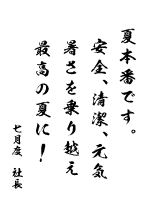 夏本番です。
安全、清潔、元気
暑さを乗り越え
最高の夏に！
七月度 社長